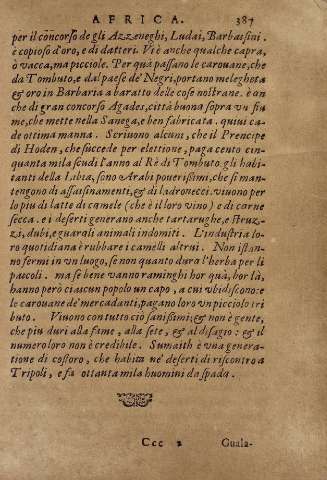 AFRICA. 387
per il concorso de gli Azzeneghi, Ludai, Barbasini.
è copioso d'oro, e di datteri. Vi è anche qualche capra,
ò vacca, ma picciole. Per quà passano le carouane, che
da Tombuto, e dal paese de' Negri, portano meleghette
& oro in Barbaria a baratto delle cose nostrane. è an
che di gran concorso Agades, città buona sopra vn fiu
me, che mette nella Sanega, e ben fabricata. quiui ca-
de ottima manna. Scriuono alcuni, che il Prencipe
di Hoden, che succede per elettione, paga cento cin-
quanta mila scudi l'anno al Rè di Tombuto. gli habi-
tanti della Libia, sono Arabi pouerissimi, che si man-
tengono di assassinamenti, & di ladronecci. viuono per
lo piu di latte di camele (che è il loro vino) e di carne
secca. e i deserti generano anche tartarughe, e struz-
zi, dubi, e guaral animali indomiti. L'industria lo-
ro quotidiana è rubbare i camelli altrui. Non istan-
no fermi in vn luogo, se non quanto dura l'herba per li
pascoli. ma se bene vanno raminghi hor quà, hor là,
hanno però ciascun popolo un capo, a cui vbidiscono: e
le carouane de' mercadanti, pagano loro vn picciolo tri
buto. Viuono con tutto ciò sanissimi; & non è gente,
che piu duri alla fame, alla sete, & al disagio: & il
numero loro non è credibile. Sumaith è vna genera-
tione di costoro, che habita ne' deserti di riscontro a
Tripoli, e fà ottanta mila huomini da spada.
Ccc 2 Guala-